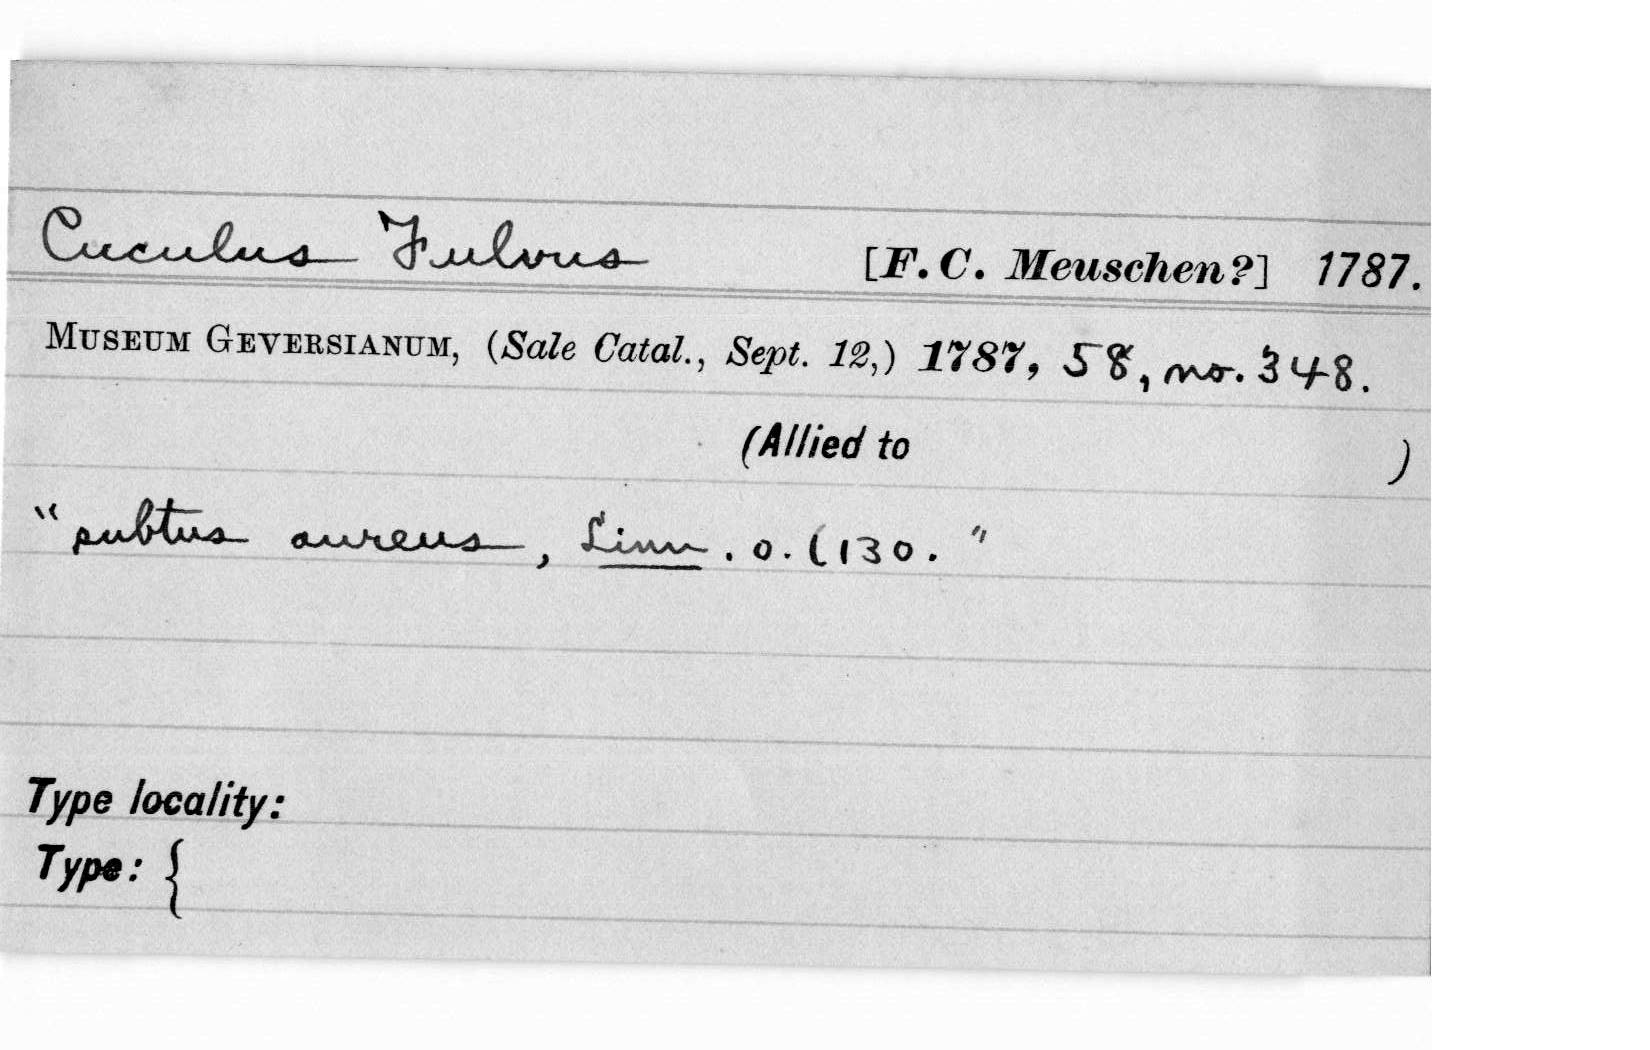 Cuculus Fulvus [F. C. Meuschen?] 1787.
MUSEUM GEVERSIANUM, (Sale Catal., Sept. 12,) 1787, 58, no. 348.
(Allied to )
"subtus aureus, Linn. o. (130."
Type locality:
Type: {